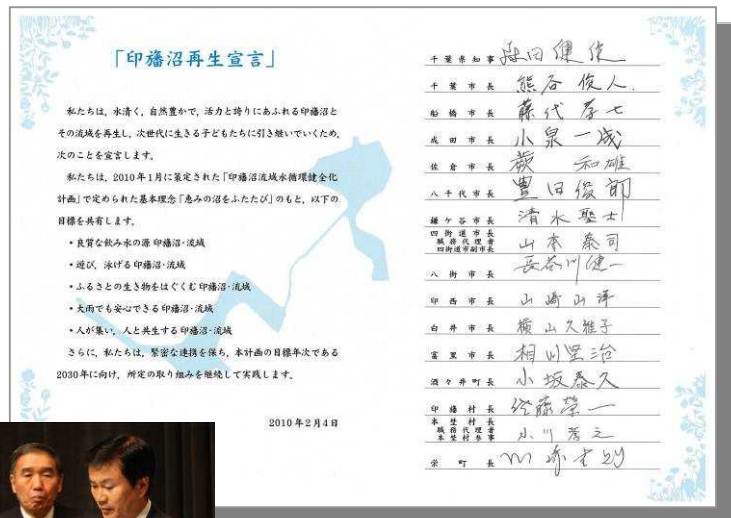 「印旛沼再生宣言」
私たちは、水清く，自然豊かで，活力と誇りにあふれる印旛沼と
その流域を再生し、次世代に生きる子どもたちに引き継いでいくため，
次のことを宣言します。
私たちは、2010年1月に策定された「印旛沼流域水循環健全化
計画」で定められた基本理念「恵みの沼をふたたび」のもと、以下の
目標を共有します。
・良質な飲み水の源 印旛沼・流域
・遊び、泳げる印旛沼・流域
・ふるさとの生き物をはぐくむ印旛沼・流域
・大雨でも安心できる印旛沼・流域
・人が集い、人と共生する印旛沼・流域
さらに、私たちは、緊密な連携を保ち、本計画の目標年次である
2030年に向け、所定の取り組みを継続して実践します。
2010年2月4日
千葉県知事 森田健作
千葉市長 熊谷俊人
船橋市長 藤代孝七
成田市長 小泉一成
佐倉市長 蕨 和雄
八千代市長 豊田俊郎
鎌ケ谷市長 清水聖士
四街道市長
職務代理者
四街道市副市長
山本泰司
八街市長 長谷川健一
印西市長 山﨑山洋
白井市長 横山久雅子
富里市長 相川堅治
酒々井町長 小坂泰久
印旛村長 佐藤榮一
本埜村長
職務代理者
本埜村参事
小川
栄町長 川崎